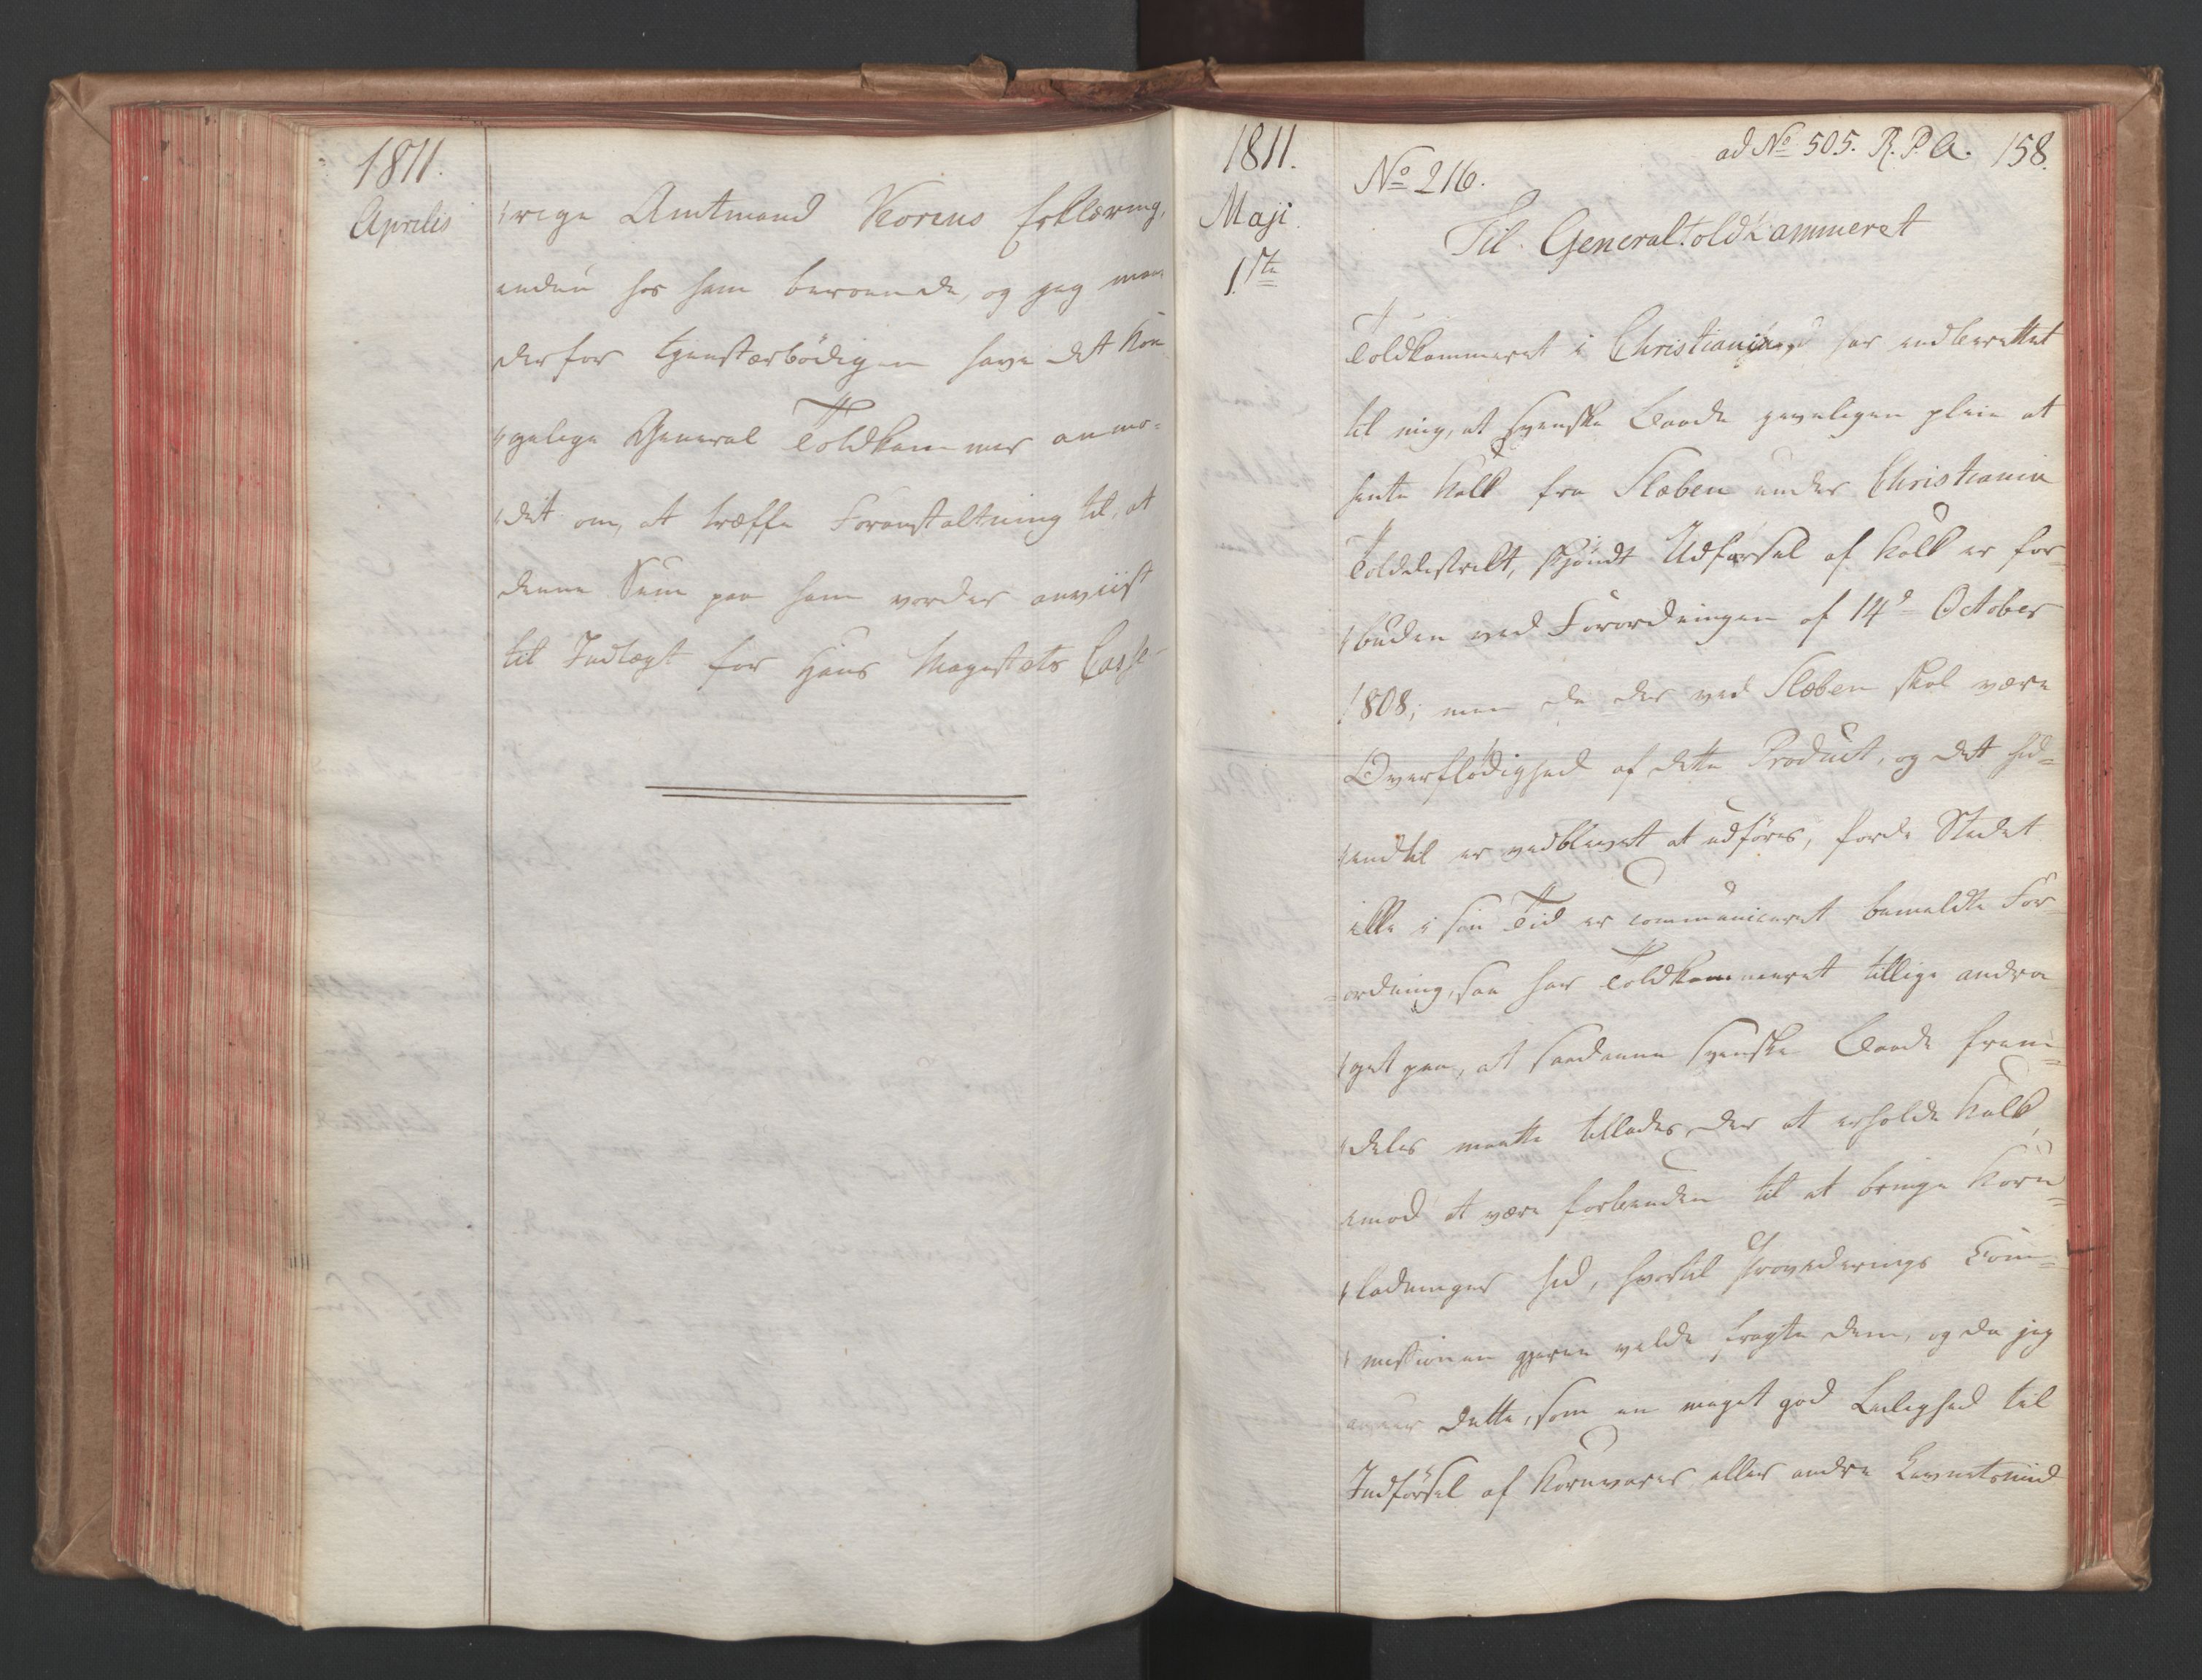 1811.
Aprilis
rige Amtmand Korens Erklæring,
endnu hos ham beroende, og jeg maae
derfor tjenstærbödigen have det Kon
gelige General Toldkammer anmo-
det om, at træffe Foranstaltning til, at
denne Sum paa ham vorder anviist
til Indtægt for Hans Majestæts Casse
1811.
Maji
1ste
ad No 505. R. P. A. 158.
No 216.
Til Generaltoldkammeret
Toldkammeret i Christiania har indberettet
til mig, at svenske Baade jevnligen pleie at
hente Kalk fra Slæben under Christiania
Tolddistrikt, skjöndt Udförsel af Kalk er for-
buden ved Forordningen af 14d October
1808; men da der ved Slæben skal være
Overflödighed af dette Product, og det hid-
indtil er vedblevet at udföres, fordi Stedet
ikke i sin Tid er communiceret bemeldte For-
ordning, saa har Toldkammeret tillige andra
get paa, at saadanne svenske Baade frem-
deles maatte tillades der at erholde Kalk,
imod at være forbunden til at bringe Korn-
ladninger hid, hvortil Provederings Com-
missionen gjerne vilde fragte dem, og da jeg
anseer dette, som en meget god Leilighed til
Indförsel af Kornvarer eller andre Levnetsmid